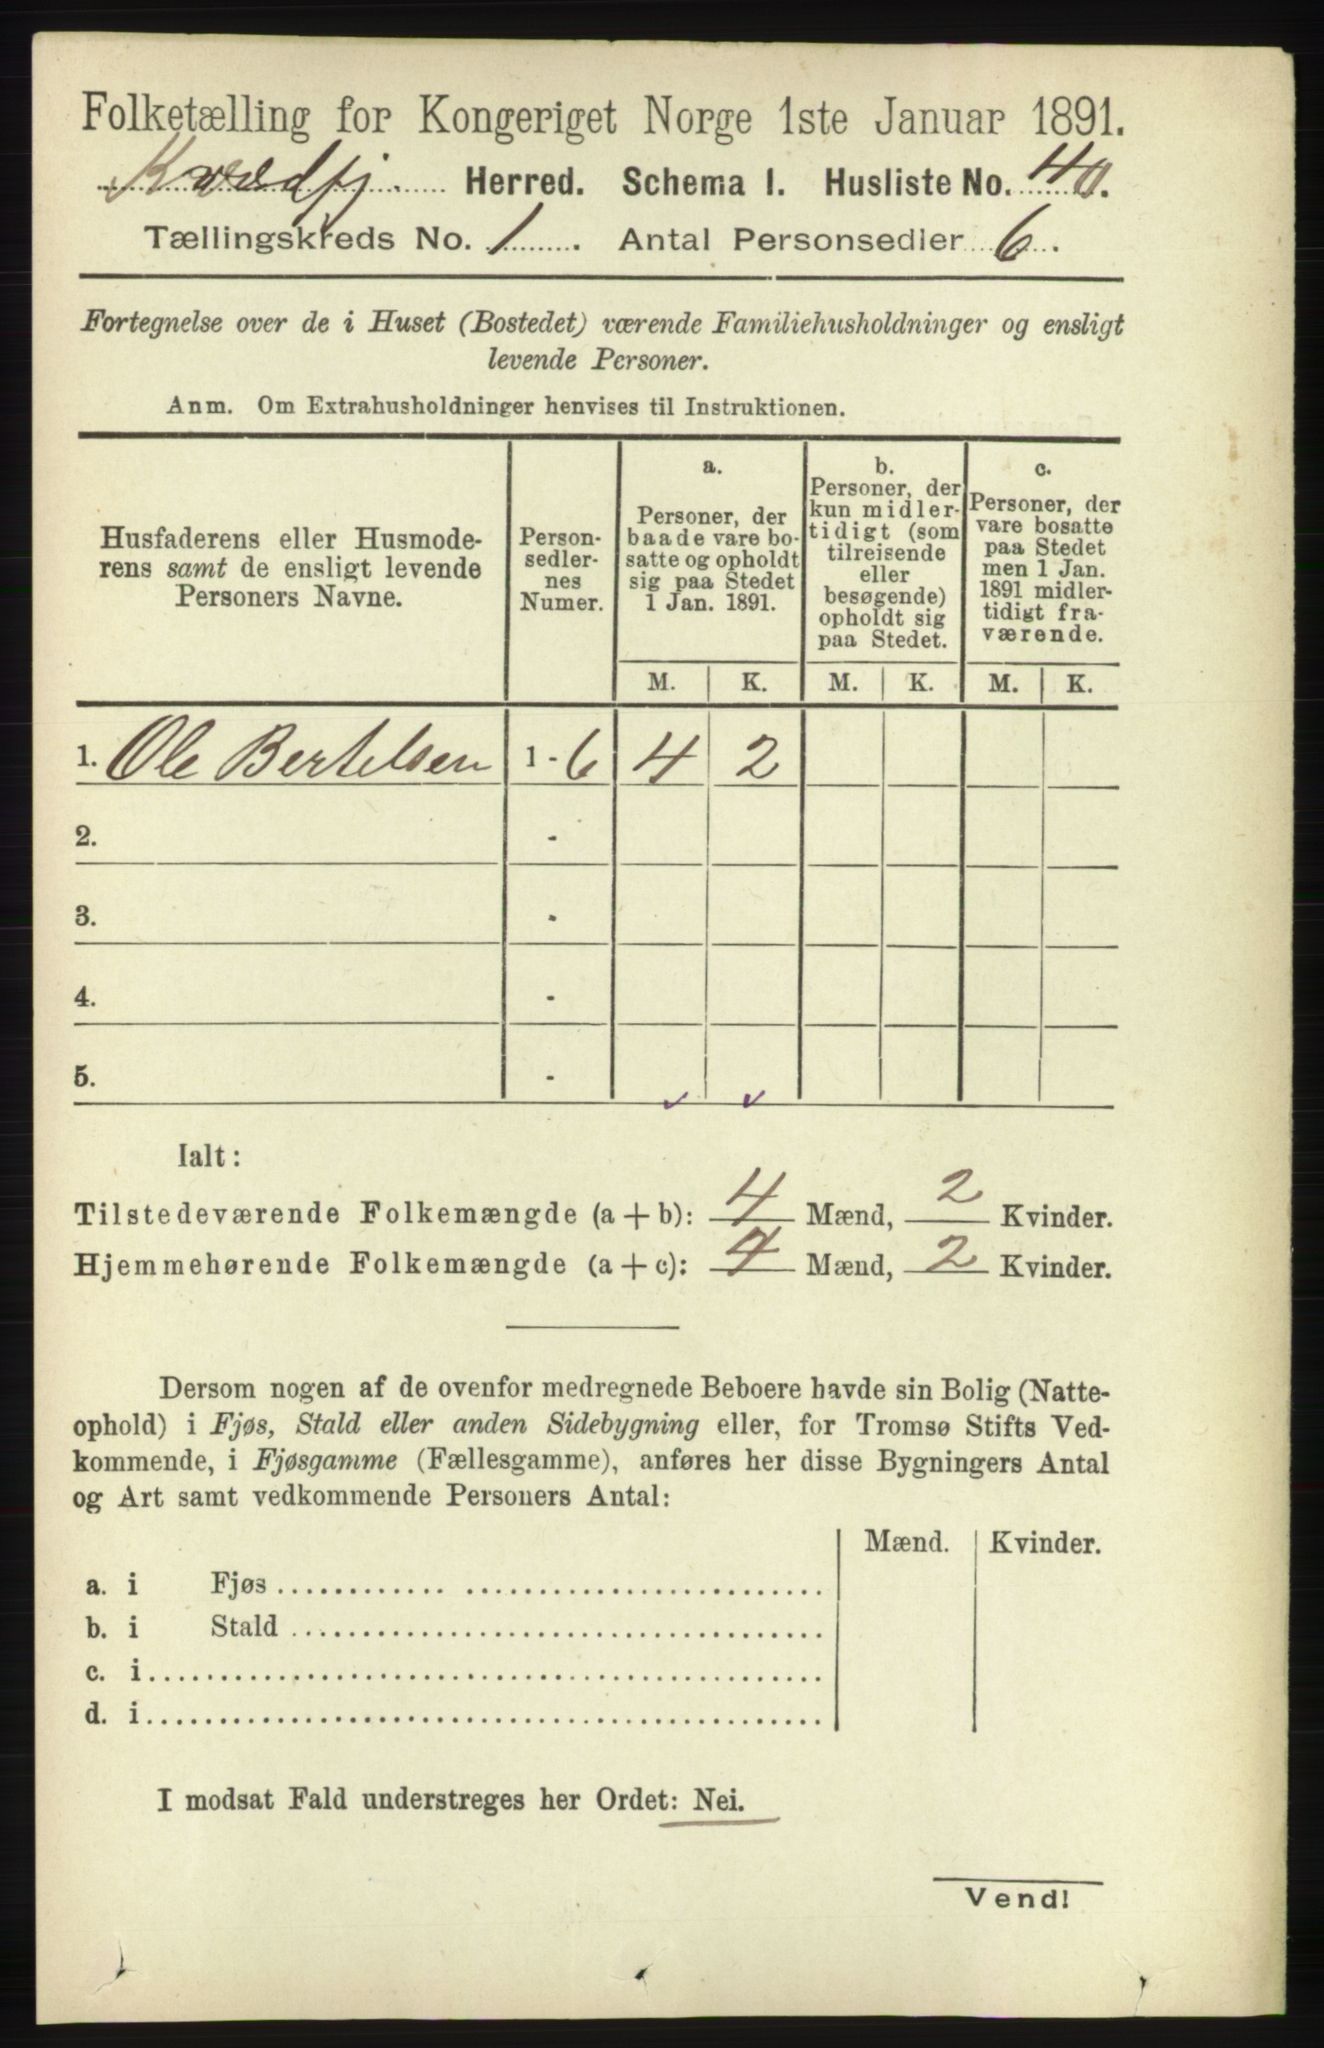 Folketælling for Kongeriget Norge 1ste Januar 1891.
Kvædfj. Herred. Schema I. Husliste No. 40.
Tællingskreds No. 1. Antal Personsedler 6.
Fortegnelse over de i Huset (Bostedet) værende Familiehusholdninger og ensligt
levende Personer.
Anm. Om Extrahusholdninger henvises til Instruktionen.
Husfaderens eller Husmode-
rens samt de ensligt levende
Personers Navne.
Person-
sedler-
nes
Numer.
a.
Personer, der
baade vare bo-
satte og opholdt
sig paa Stedet
1 Jan. 1891.
b.
Personer, der
kun midler-
tidigt (som
tilreisende
eller
besøgende)
opholdt sig
paa Stedet.
c.
Personer, der
vare bosatte
paa Stedet
men 1 Jan.
1891 midler-
tidigt fra-
værende.
M. K. M. K. M. K.
1. Ole Bertelsen 1 - 6 4 2
2. -
3. -
4. -
5. -
Ialt:
Tilstedeværende Folkemængde (a + b): 4 Mænd, 2 Kvinder.
Hjemmehørende Folkemængde (a + c): 4 Mænd, 2 Kvinder.
Dersom nogen af de ovenfor medregnede Beboere havde sin Bolig (Natte-
ophold) i Fjøs, Stald eller anden Sidebygning eller, for Tromsø Stifts Ved-
kommende, i Fjøsgamme (Fællesgamme), anføres her disse Bygningers Antal
og Art samt vedkommende Personers Antal:
Mænd. Kvinder.
a. i Fjøs
b. i Stald
c. i
d. i
I modsat Fald understreges her Ordet: Nei.
Vend!